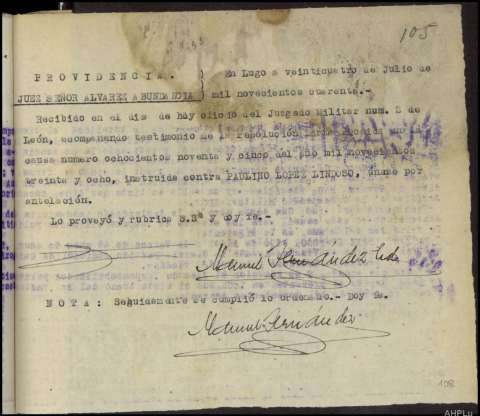 105
PROVIDENCIA.
JUEZ SEÑOR ALVAREZ ABUNDANCIA
En Lugo a veinticuatro de Julio de
mil novecientos cuarenta.-
Recibido en el dia de hoy oficio del Juzgado Militar num. 2 de
León, acompañando testimonio de la resolución en
causa numero ochocientos noventa y cinco del año mil novecientos
treinta y ocho, instruida contra PAULINO LOPEZ LINDOSO, únase por
antelación.
Lo proveyó y rubrica S.Sª y doy fe.-
Manuel Fernández
NOTA: Seguidamente se cumplió lo ordenado.- Doy fe.
Manuel Fernández.
108
AHPLu